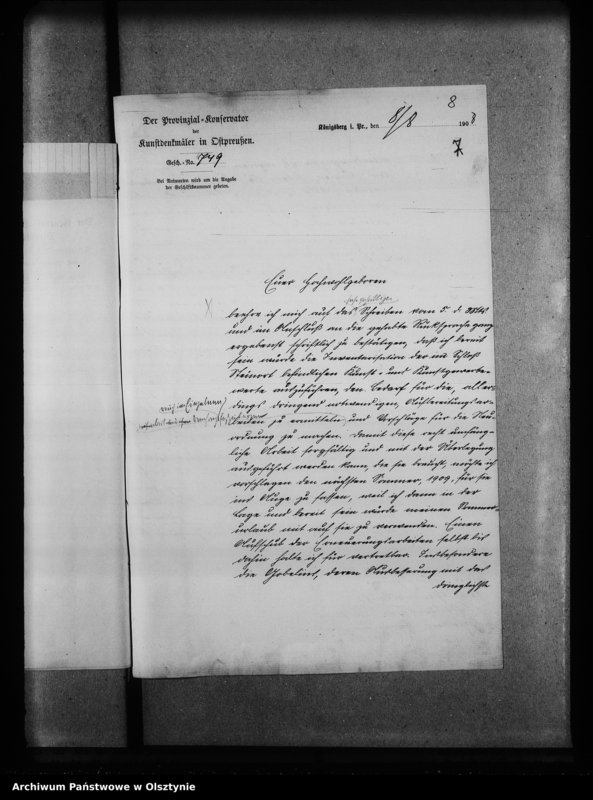 8
Der Provinzial-Konservator
der
Kunstdenkmäler in Ostpreußen.
Königsberg i. Pr., den 8/8 1908
7
Gesch.-No. 749
Bei Antworten wird um die Angabe
der Geschäftsnummer gebeten.
Euer Hochwohlgeboren
beehre ich mich auf das Schreiben vom 5. d. Mts
und im Anschluß an die gehabte Rücksprache ganz
ergebenst schriftlich zu bestätigen, daß ich bereit
sein würde die Inventarisation der im Schloß
Steinort befindlichen Kunst- und Kunstgewerbe-
werke auszuführen, den Bedarf für die, aller-
dings dringend notwendigen,
zu ermitteln und Vorschläge für die Neu-
ordnung zu machen. Damit diese recht umfang-
liche Arbeit sorgfältig und mit der Überlegung
ausgeführt werden kann, die sie braucht, möchte ich
vorschlagen den nächsten Sommer, 1909, für sie
ins Auge zu fassen, weil ich dann in der
Lage und bereit sein würde meinen Sommer-
urlaub mit auf sie zu verwenden. Einen
Aufschub der Erneuerungsarbeiten selbst bis
dahin halte ich für vertretbar. Insbesondere
die Gobelins, deren Ausbesserung mit das
dringlichste
Archiwum Państwowe w Olsztynie